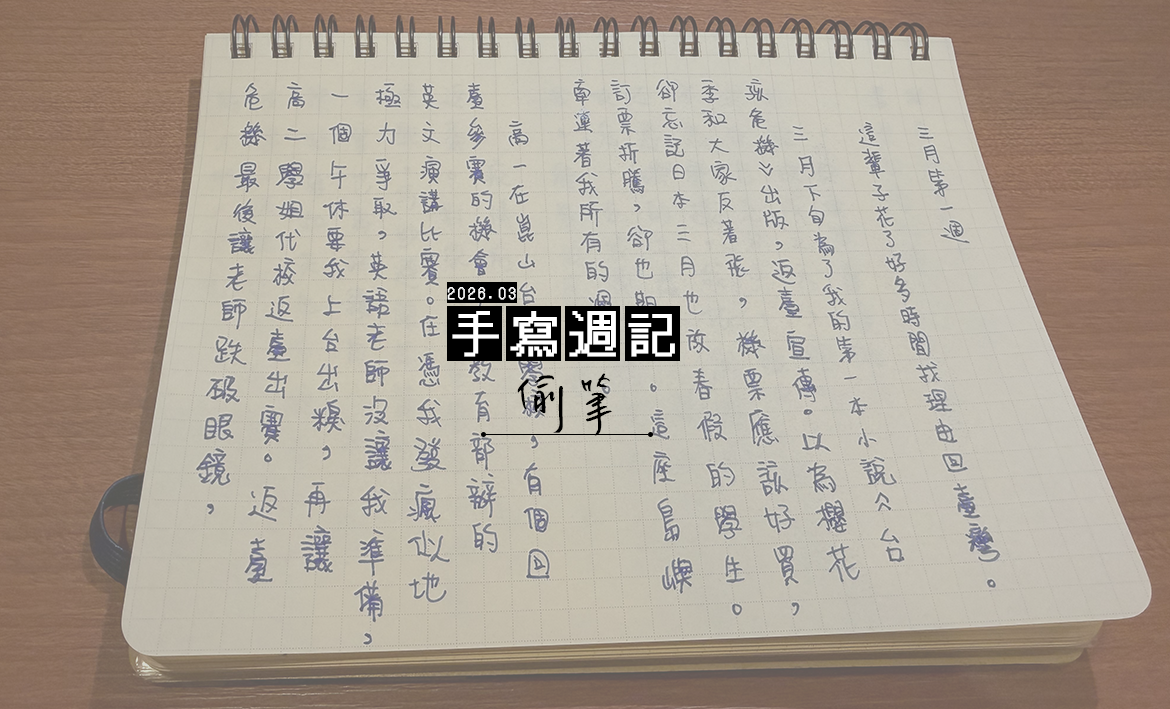 三月第一週
這輩子花了好多時間找理由回臺灣。
三月下旬為了我的第一本小說《台
孩危機》出版,返臺宣傳。以為櫻花
季和大家反著飛,機票應該好買,
卻忘記日本三月也放春假的學生。
訂票折騰,卻也期。這座島嶼
牽連著我所有的
高一在崑山台,有個回
臺參賽的機會教育部辦的
英文演講比賽。在憑我發瘋似地
極力爭取,英語老師沒讓我準備,
一個午休要我上台出糗,再讓
高二學姐代校返臺出賽。返臺
危機最後讓老師跌破眼鏡,
2026.03
手寫週記
偷筆